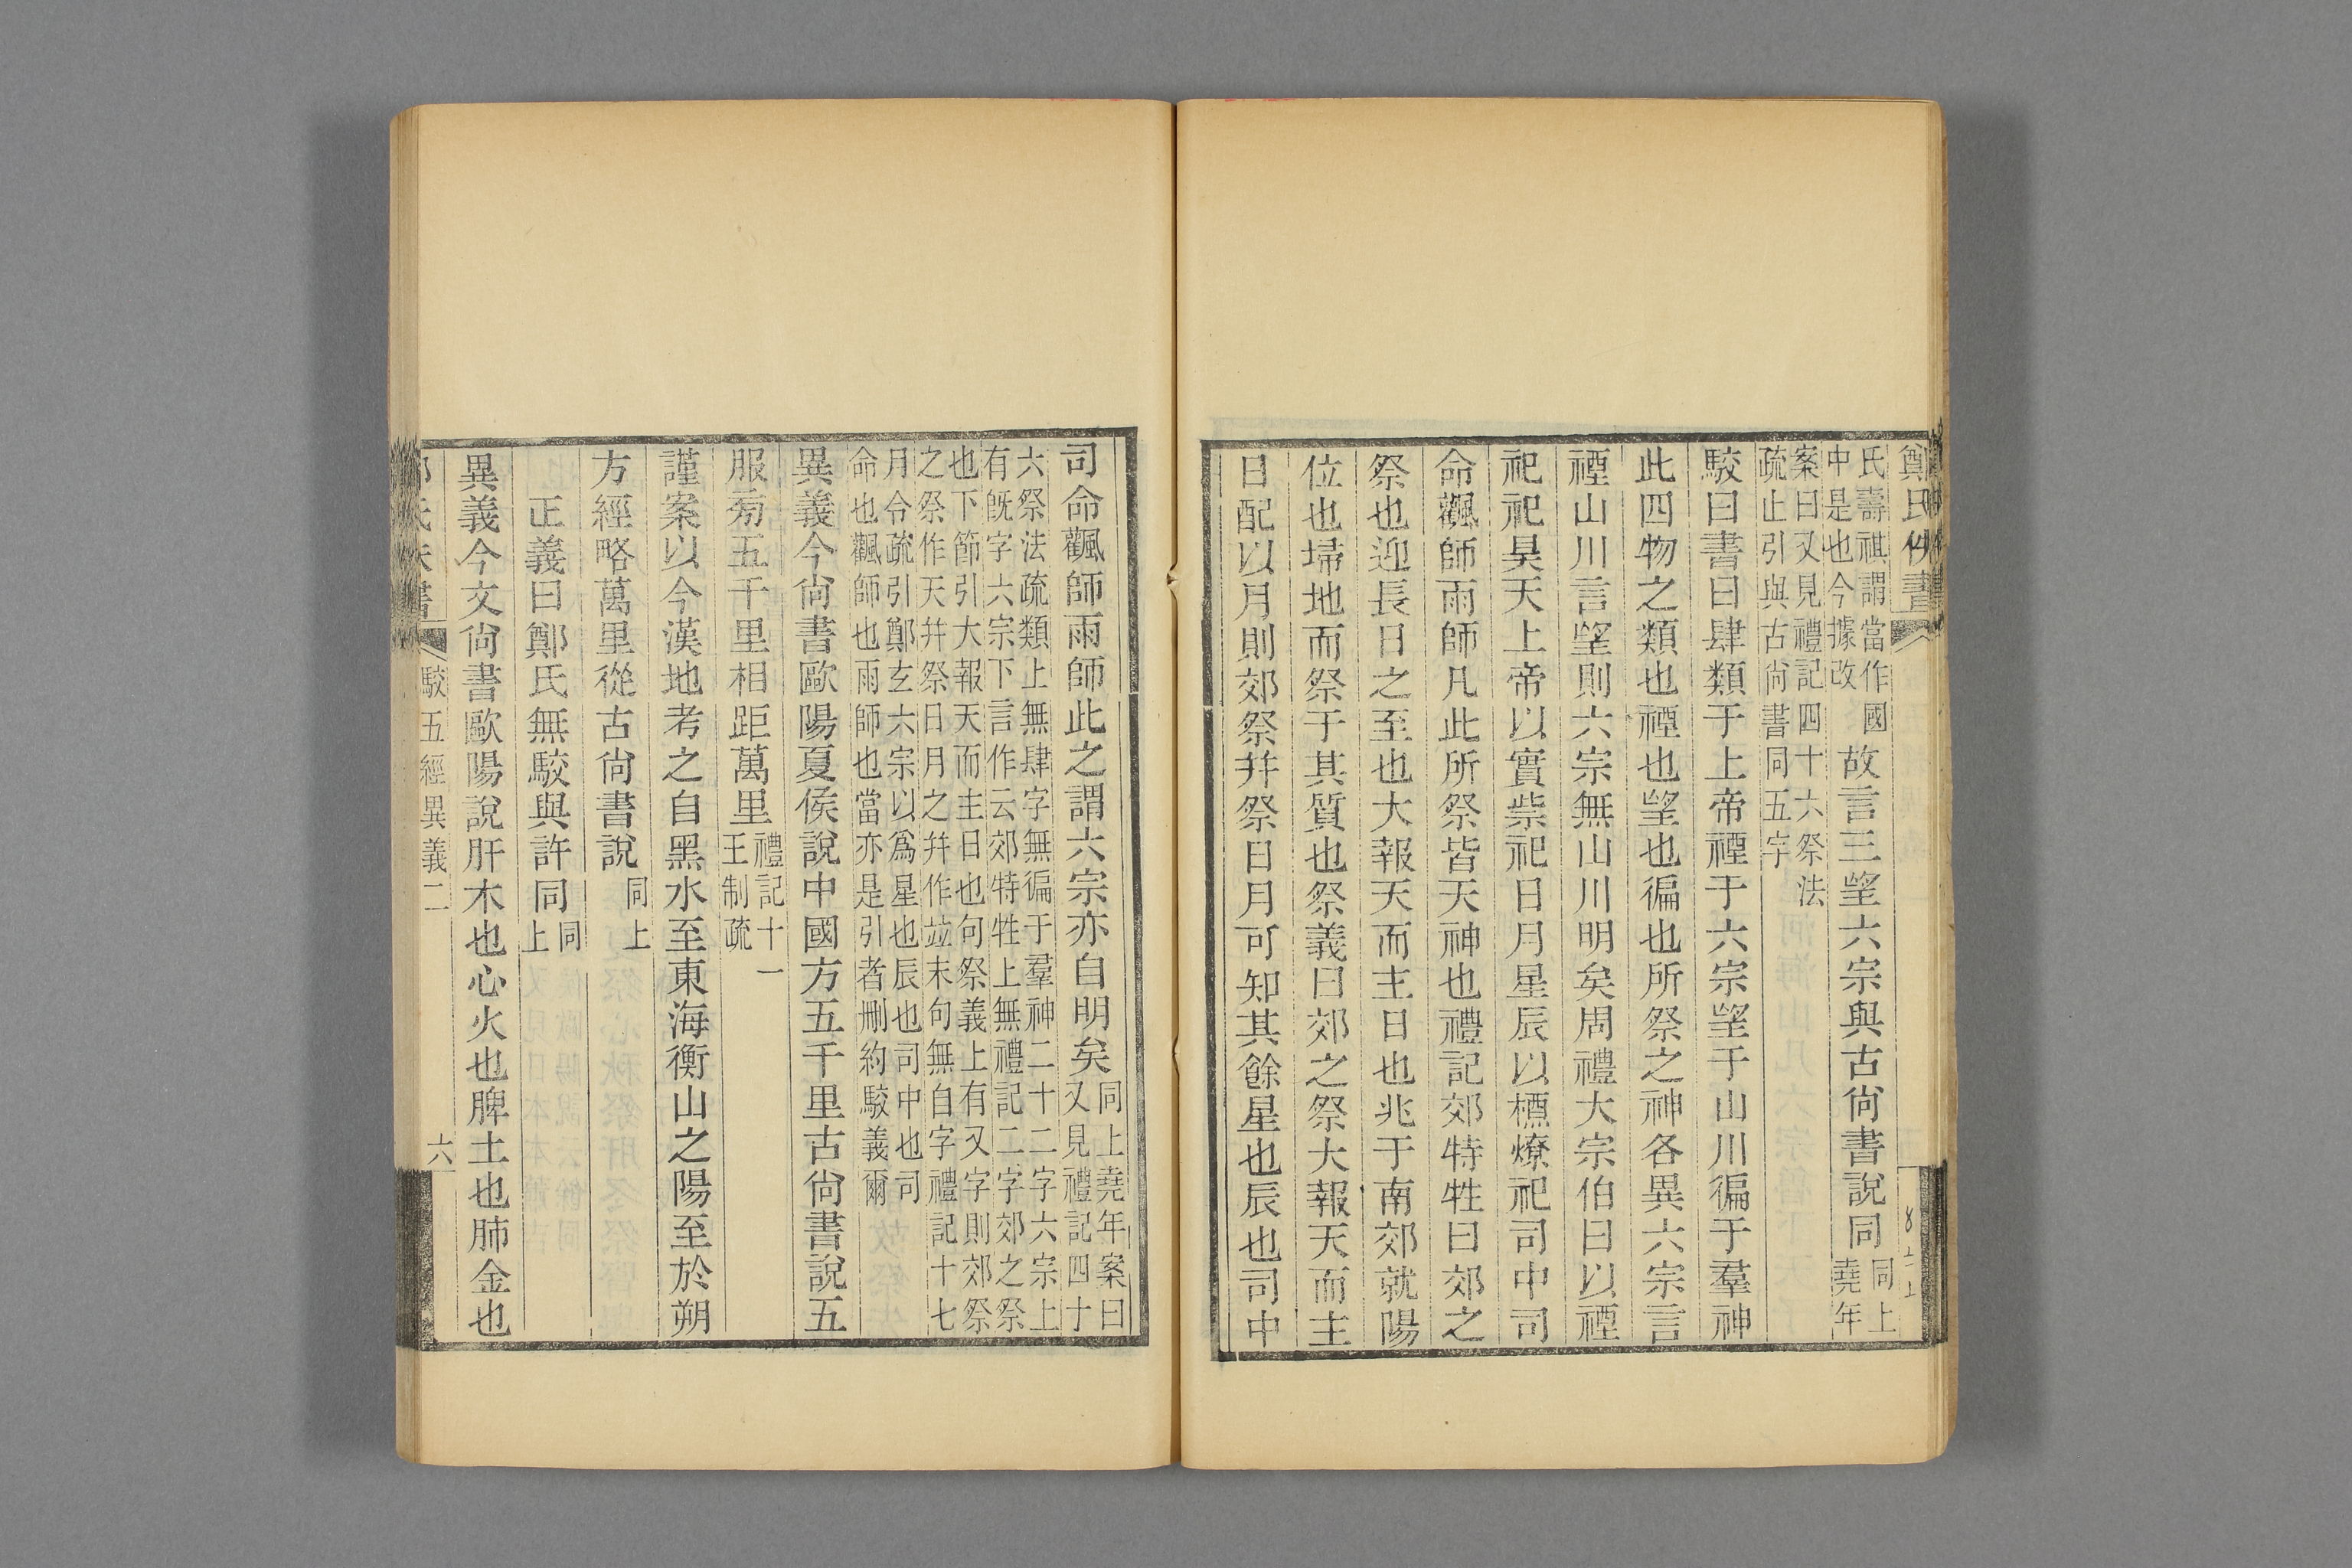 鄭氏佚書
氏壽祺謂當作國
中是也今據改
故言三望六宗與古尙書說同
同上
堯年
案曰又見禮記四十六祭法
疏止引與古尙書同五字
駮曰書曰肆類于上帝禋于六宗望于山川徧于羣神
此四物之類也禋也望也徧也所祭之神各異六宗言
禋山川言望則六宗無山川明矣周禮大宗伯曰以禋
祀祀昊天上帝以實祡祀日月星辰以槱燎祀司中司
命飌師雨師凡此所祭皆天神也禮記郊特牲曰郊之
祭也迎長日之至也大報天而主日也兆于南郊就陽
位也埽地而祭于其質也祭義曰郊之祭大報天而主
日配以月則郊祭幷祭日月可知其餘星也辰也司中
司命飌師雨師此之謂六宗亦自明矣
同上堯年案曰
又見禮記四十
六祭法疏類上無肆字無徧于羣神二十二字六宗上
有旣字六宗下言作云郊特牲上無禮記二字郊之祭
也下節引大報天而主日也句祭義上有又字則郊祭
之祭作天幷祭日月之幷作竝末句無自字禮記十七
月令疏引鄭玄六宗以爲星也辰也司中也司
命也飌師也雨師也當亦是引者刪約駮義爾
異義今尙書歐陽夏侯說中國方五千里古尙書說五
服旁五千里相距萬里
禮記十一
王制疏
謹案以今漢地考之自黑水至東海衡山之陽至於朔
方經略萬里從古尙書說
同上
正義曰鄭氏無駮與許同
同
上
異義今文尙書歐陽說肝木也心火也脾土也肺金也
駮五經異義二
六